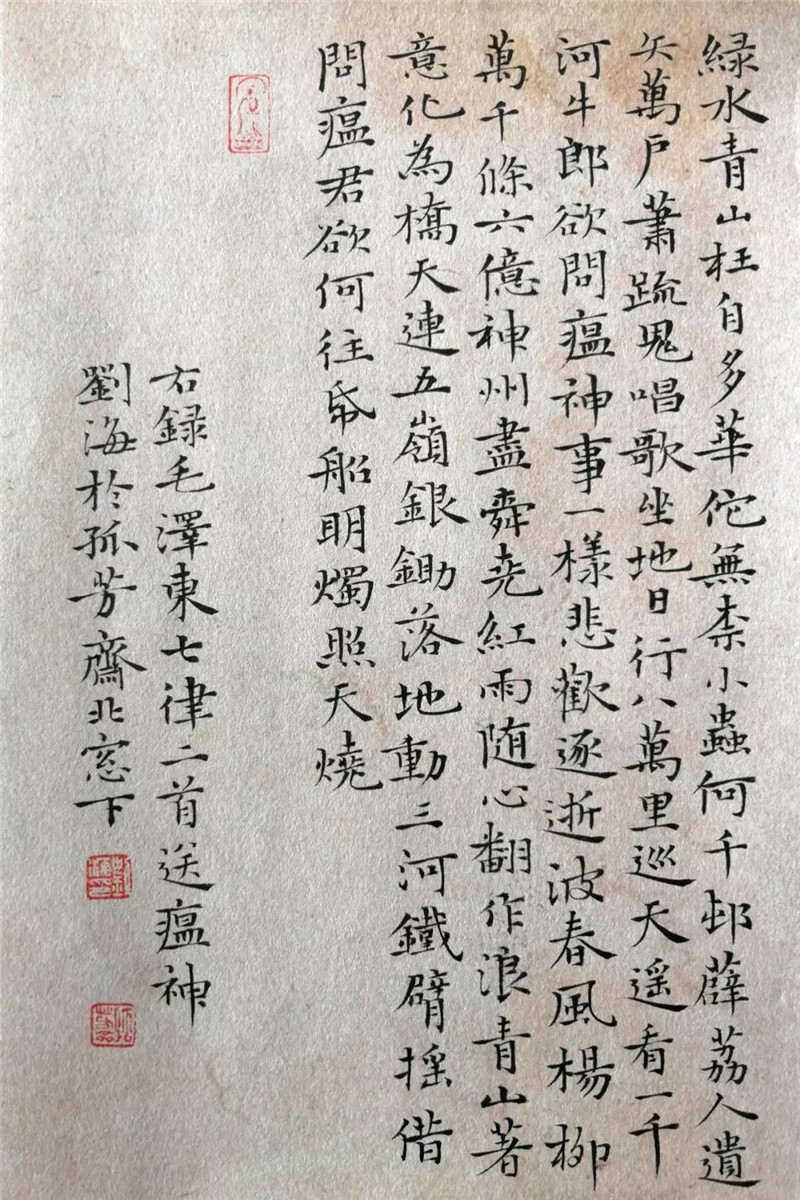 緑水青山枉自多華佗無柰小蟲何千邨薜荔人遺
矢萬戶蕭疏鬼唱歌坐地日行八萬里巡天遥看一千
河牛郎欲問瘟神事一樣悲歡逐逝波春風楊柳
萬千條六億神州盡舜尭紅雨随心翻作浪青山著
意化為橋天連五嶺銀鋤落地動三河鐵臂摇借
問瘟君欲何往帋船明燭照天燒
右録毛澤東七律二首送瘟神
劉海於孤芳齋北窓下